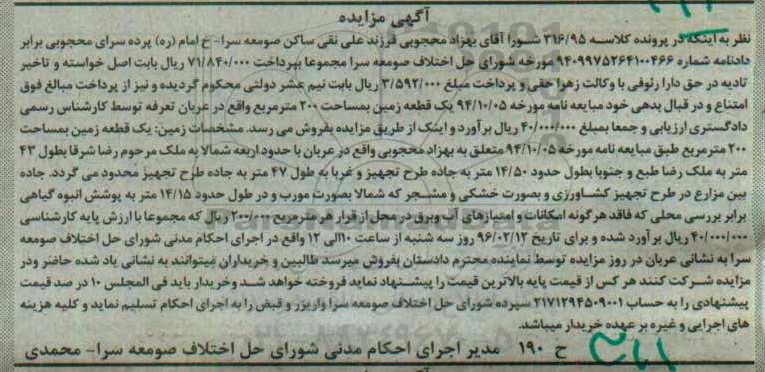 آگهی مزایده
نظر به اینکه در پرونده کلاسه ۳۱۶/۹۵ شورا آقای بهزاد محجوبی فرزند علی نقی ساکن صومعه سرا- خ امام (ره) پرده سرای محجوبی برابر
دادنامه شماره ۹۴۰۹۹۷۵۲۶۴۱۰۰۴۶۶ مورخه شورای حل اختلاف صومعه سرا مجموعا بپرداخت ۷۱/۸۴۰/۰۰۰ ریال بابت اصل خواسته و تاخیر
تادیه در حق دارا رئوفی با وکالت زهرا حقی و پرداخت مبلغ ۳/۵۹۲/۰۰۰ ریال بابت نیم عشر دولتی محکوم گردیده و نیز از پرداخت مبالغ فوق
امتناع و در قبال بدهی خود مبایعه نامه مورخه ۹۴/۱۰/۰۵ یک قطعه زمین بمساحت ۲۰۰ مترمربع واقع در عربان تعرفه توسط کارشناس رسمی
دادگستری ارزیابی و جمعا بمبلغ ۴۰/۰۰۰/۰۰۰ ریال برآورد و اینک از طریق مزایده بفروش می رسد. مشخصات زمین: یک قطعه زمین بمساحت
۲۰۰ مترمربع طبق مبایعه نامه مورخه ۹۴/۱۰/۰۵ متعلق به بهزاد محجوبی واقع در عربان با حدود اربعه شمالا به ملک مرحوم رضا شرقا بطول ۴۳
متر به ملک رضا طبع و جنوبا بطول حدود ۱۴/۵۰ متر به جاده طرح تجهیز و غربا به طول ۴۷ متر به جاده طرح تجهیز محدود می گردد. جاده
بین مزارع در طرح تجهیز کشاورزی و بصورت خشکی و مشجر که شمالا بصورت مورب و در طول حدود ۱۴/۱۵ متر به پوشش انبوه گیاهی
برابر بررسی محلی که فاقد هر گونه امکانات و امتیازهای آب وبرق در محل از قرار هر مترمربع ۲۰۰/۰۰۰ ریال که مجموعا با ارزش پایه کارشناسی
۴۰/۰۰۰/۰۰۰ ریال برآورد شده و برای تاریخ ۹۶/۰۲/۱۲ روز سه شنبه از ساعت ۱۰الی ۱۲ واقع در اجرای احکام مدنی شورای حل اختلاف صومعه
سرا به نشانی عربان در روز مزایده توسط نماینده محترم دادستان بفروش میرسد طالبین و خریداران میتوانند به نشانی یاد شده حاضر ودر
مزایده شرکت کنند هر کس از قیمت پایه بالاترین قیمت را پیشنهاد نماید فروخته خواهد شد وخریدار باید فی المجلس ۱۰ در صد قیمت
پیشنهادی را به حساب ۲۱۷۱۲۹۴۵۰۹۰۰۱ سپرده شورای حل اختلاف صومعه سرا واریز و قبض را به اجرای احکام تسلیم نماید و کلیه هزینه
های اجرایی و غیره بر عهده خریدار میباشد.
ح ۱۹۰ مدیر اجرای احکام مدنی شورای حل اختلاف صومعه سرا- محمدی